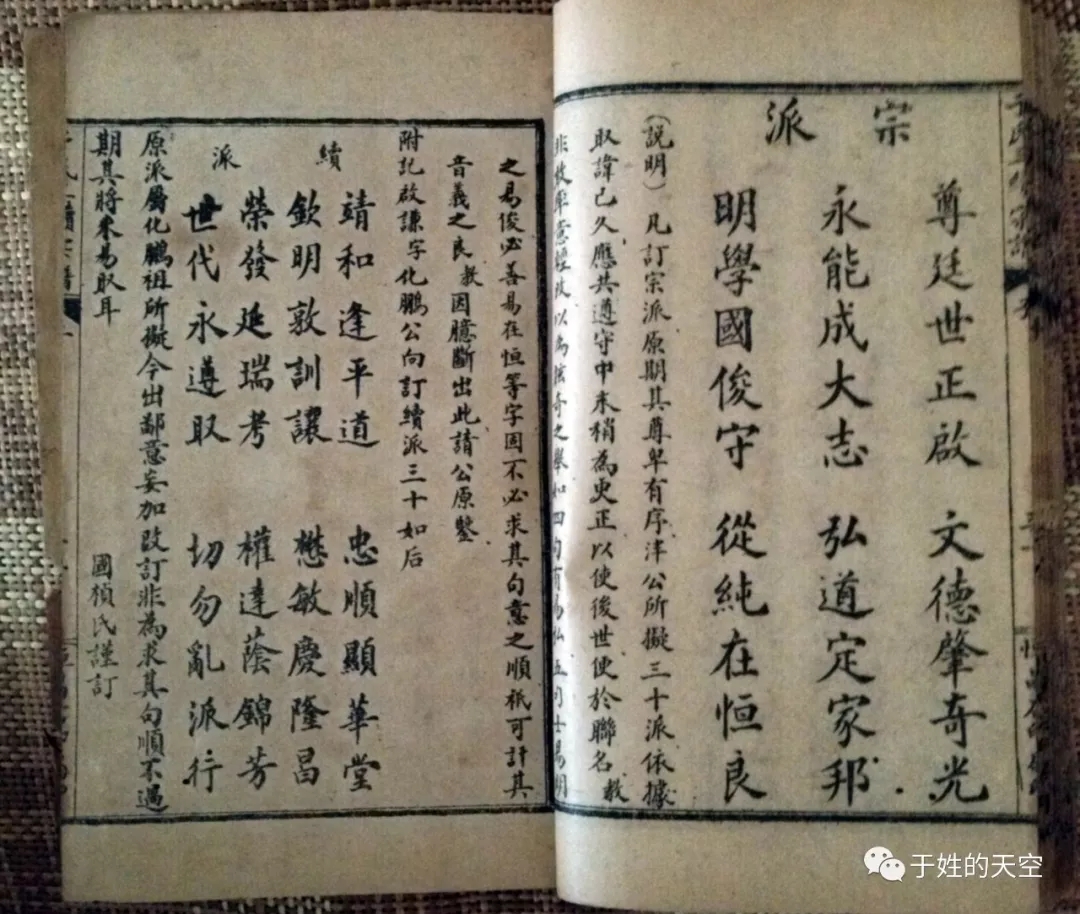 宗派
尊廷世正啟 文德肇奇光
永能成大志 弘道定家邦
明學國俊守 從純在恒良
(説明)凡訂宗派原期其尊卑有序津公所擬三十派依據
取諱已久應共遵守中末稍為更正以使後世便於聯名教
非故率意經改以為
之易俊必善易在恒等字固不必求其句意之順祇可計其
音義之良教因臆斷出此請公原鑒
附記啟謙字化鵬公向訂續派三十如后
續派
靖和逢平道 忠順顯華堂
欽明敦訓讓 懋敏慶隆昌
榮發延瑞考 權達蔭錦芳
世代永遵取 切勿亂派行
原派屬化鵬祖所擬今出鄙意妄加改訂非為求其句順不過
期其將來易取耳
國楨氏謹訂
于姓的天空